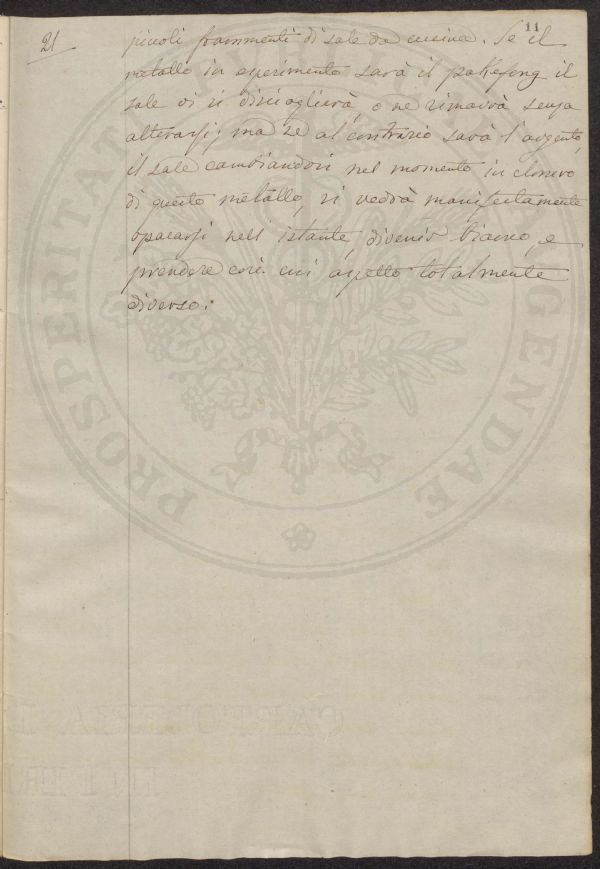 21
11
piccoli frammenti di sale da cucina. Se il
metallo in esperimento sarà il pakfong il
sale vi si discioglierà, o ne rimarrà senza
alterarsi; ma se al contrario sarà l'argento,
il sale cambiandosi nel momento in cloruro
di questo metallo, si vedrà manifestamente
opacarsi nell'istante, divenir bianco, e
prendere così un aspetto totalmente
diverso.
PROSPERITAT GENDAE